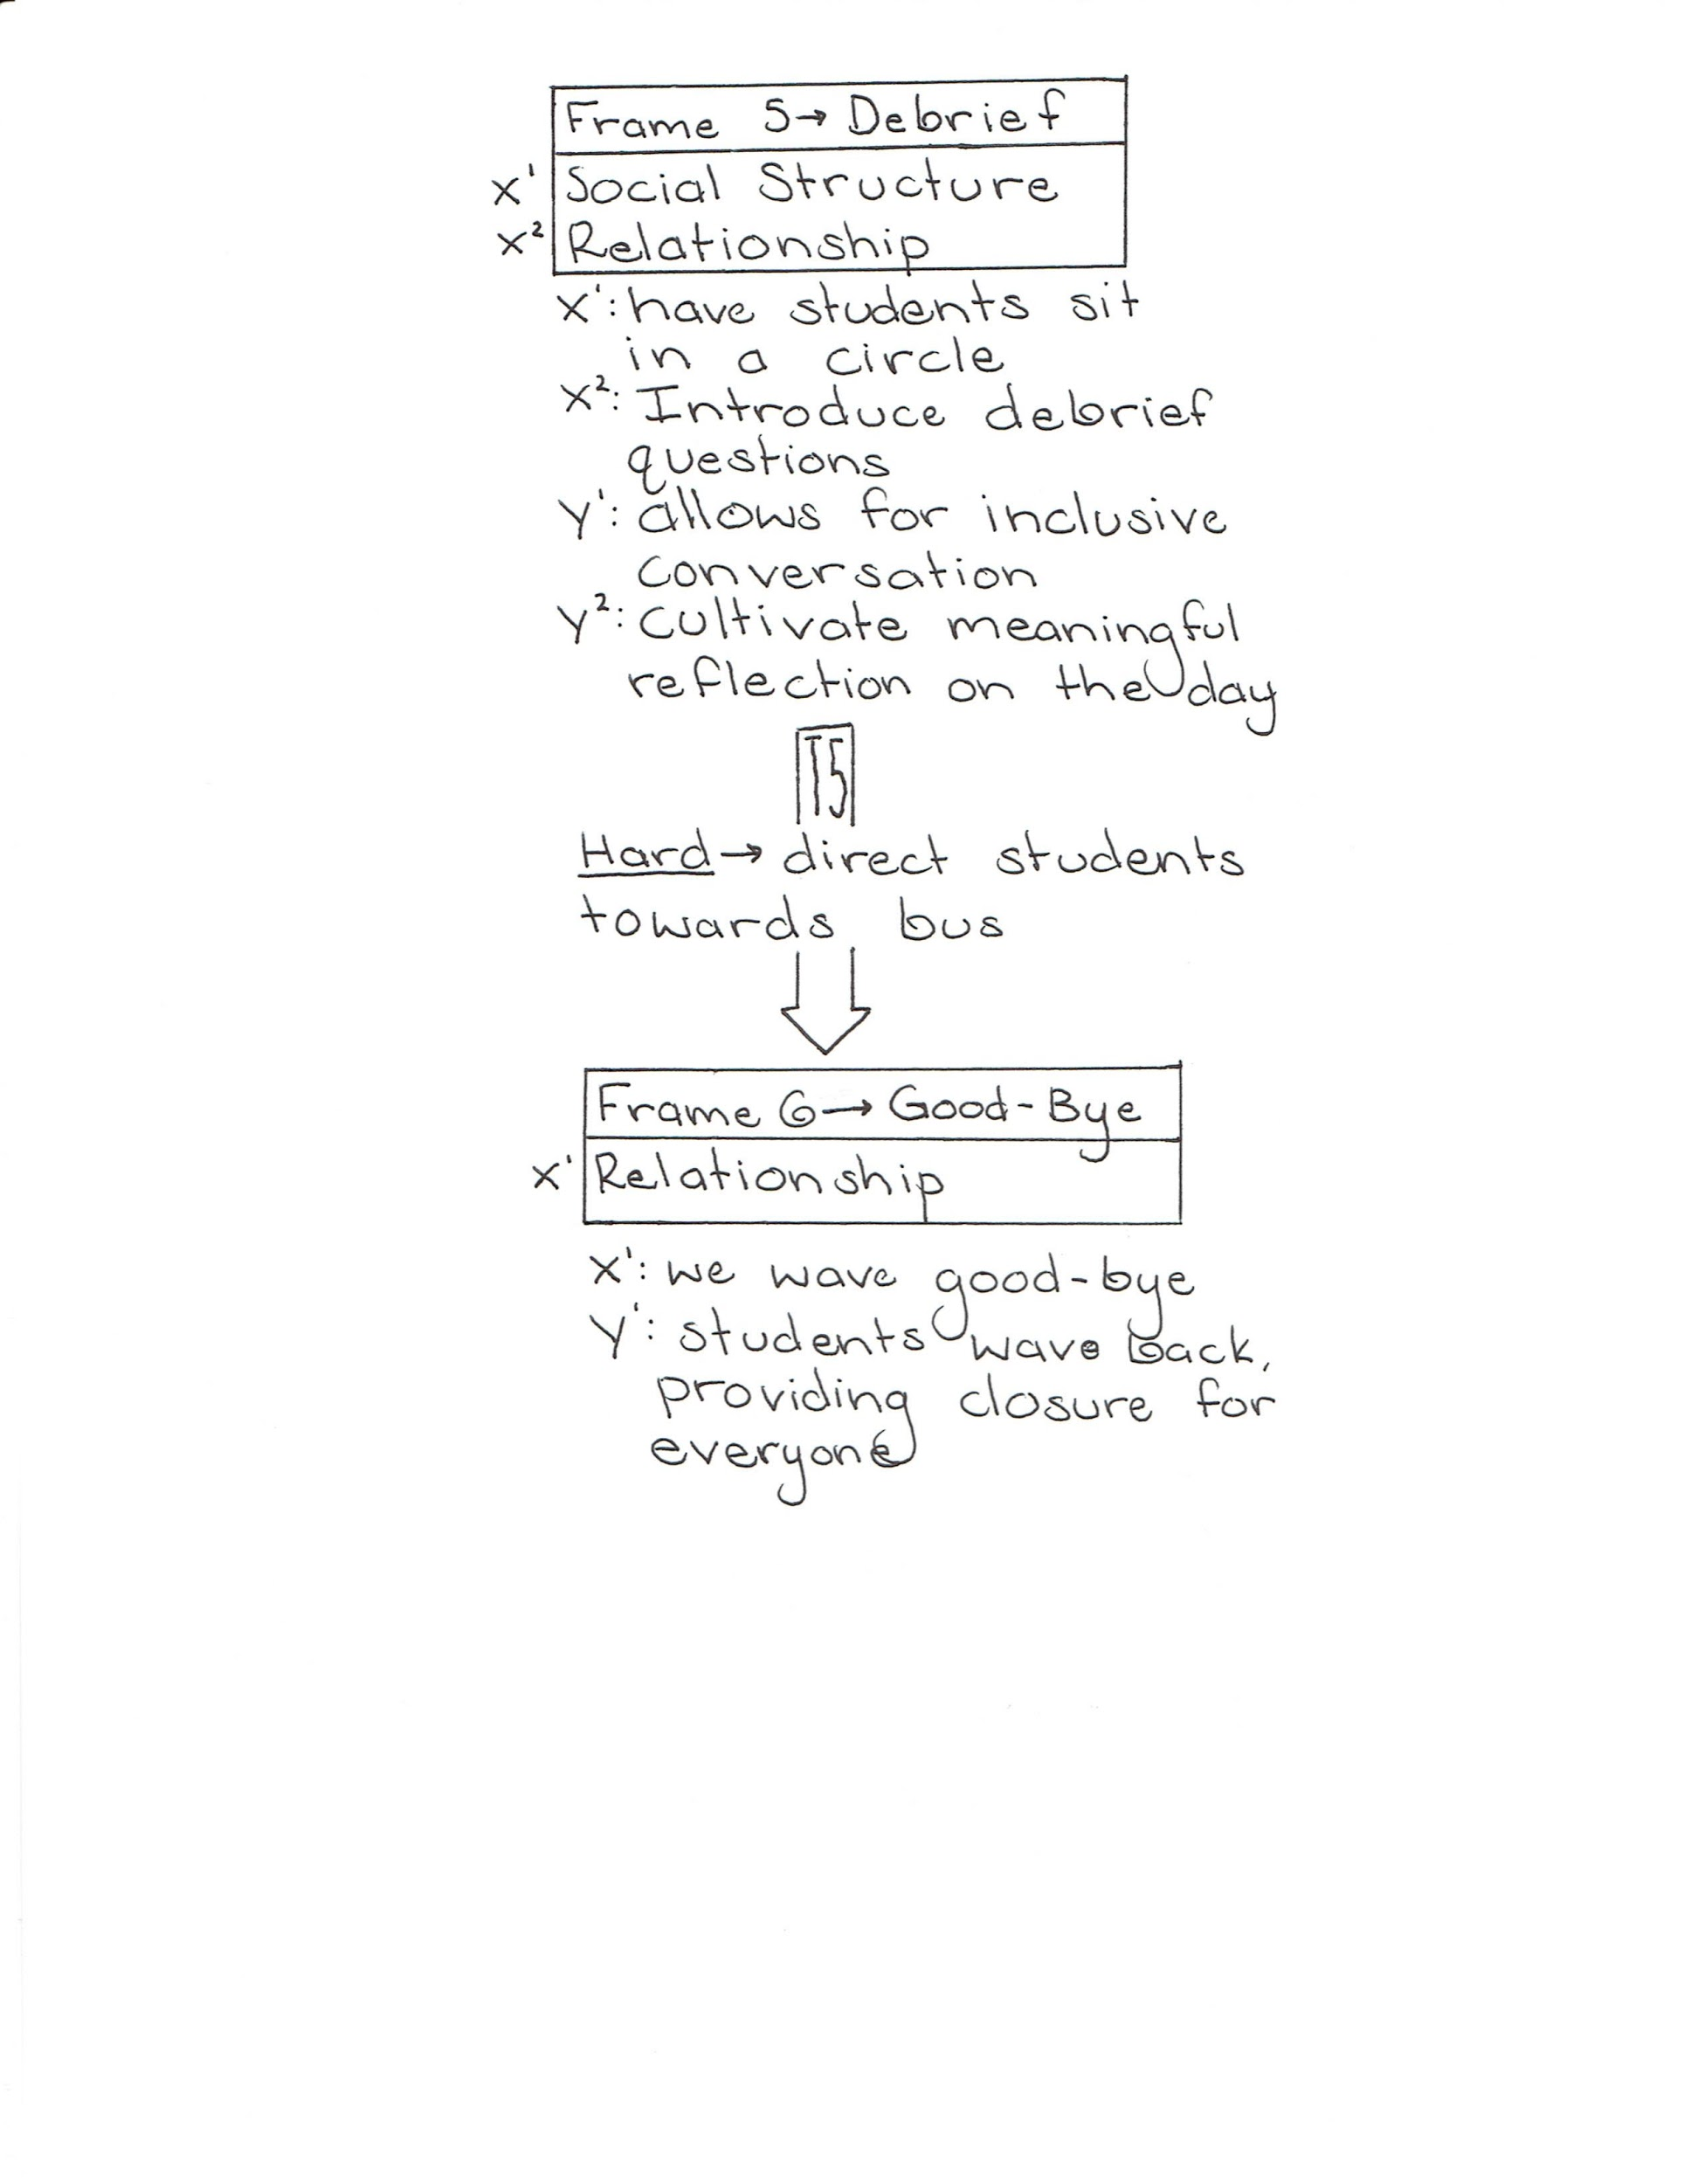 Frame 5→ Debrief
X¹ Social Structure
X² Relationship
X¹: have students sit
in a circle
X²: Introduce debrief
questions
Y¹: allows for inclusive
conversation
Y²: cultivate meaningful
reflection on the day
T5
Hard→ direct students
towards bus
Frame 6→ Good-Bye
X¹ Relationship
X¹: we wave good-bye
Y¹: students wave back,
providing closure for
everyone